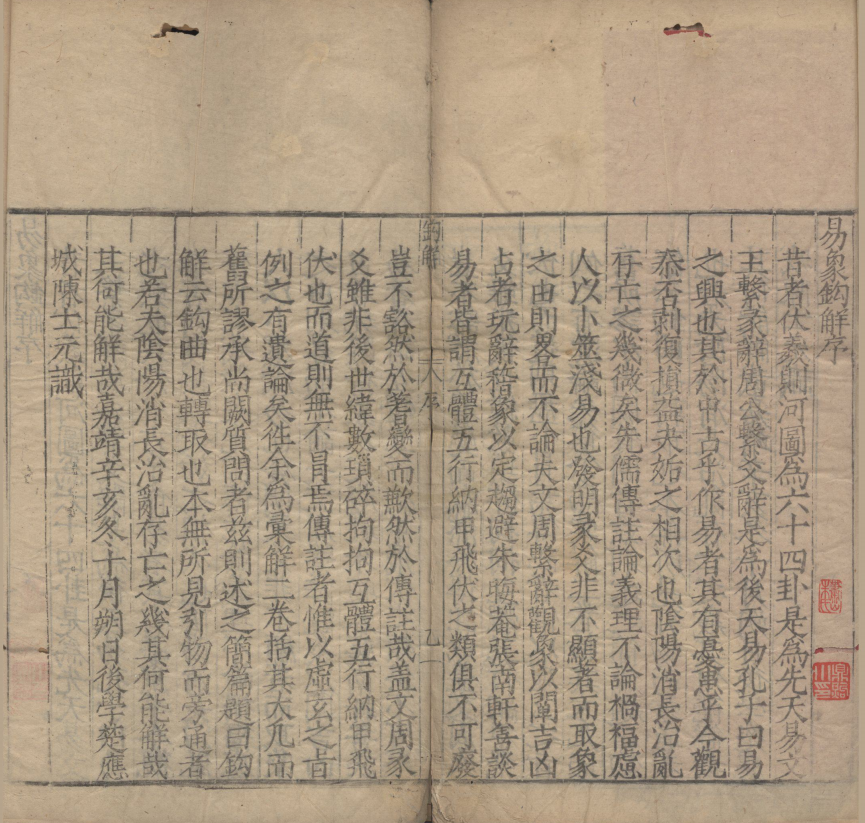 易象鈎解序
昔者伏羲則河圖為六十四卦是為先天易文
王繫彖辭周公繫爻辭是為後天易孔子曰易
之興也其於中古乎作易者其有憂患乎今觀
泰否剥復損益夬姤之相次也陰陽消長治亂
存亡之幾微矣先儒傳註論義理不論禍福慮
人以卜筮淺易也發明彖爻非不顯著而取象
之由則畧而不論夫文周繫辭觀象以闡吉凶
占者玩辭稽象以定趨避朱晦菴張南軒善談
易者皆謂互體五行納甲飛伏之類俱不可廢
鈎解
序
豈不豁然於蓍變而歉然於傳註哉盖文周彖
爻雖非後世緯數瑣碎拘拘互體五行納甲飛
伏也而道則無不冒焉傳註者惟以虛玄之旨
例之有遺論矣徃余為彙解二卷括其大凡而
舊所謬承尚闕質問者兹則述之簡篇題曰鈎
解云鈎曲也轉取也本無所見引物而旁通者
也若夫陰陽消長治亂存亡之幾其何能解哉
其何能解哉嘉靖辛亥冬十月朔日後學楚應
城陳士元識